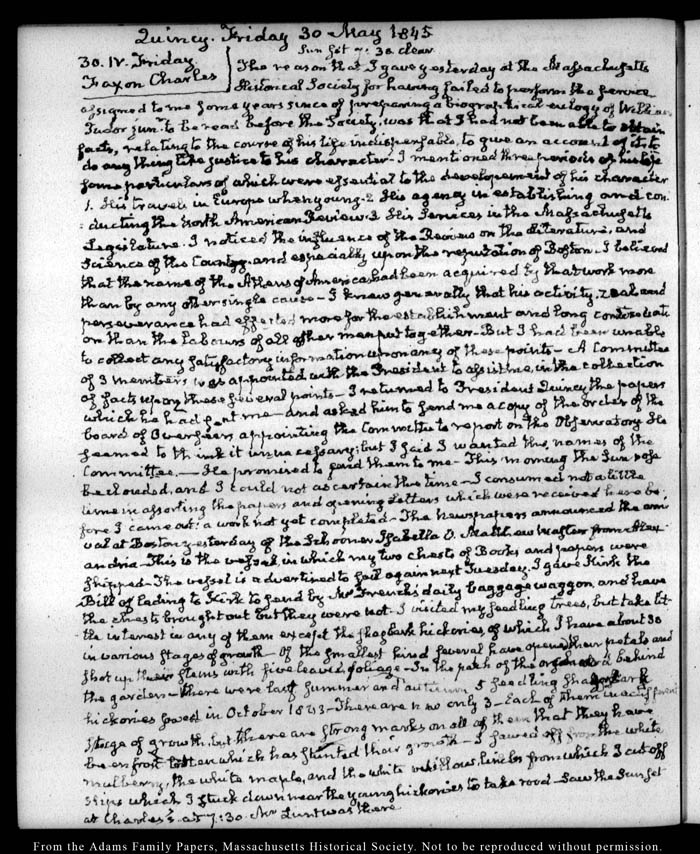 Quincy. Friday 30 May 1845
Sun set 7:30 clear.
30. IV. Friday
Faxon Charles
The reason that I gave yesterday at the Massachusetts
Historical Society for having failed to perform the service
assigned to me some years since of preparing a biographical eulogy of William
Tudor junr. to be read before the Society, was that I had not been able to obtain
facts, relating to the course of his life indispensable, to give an account of it, to
do any thing like justice to his character. I mentioned three periods of his life
some particulars of which were essential to the developement of his character
1. His travels in Europe when young. 2 His agency in establishing and con-
:ducting the North American Review. 3 His Services in the Massachusetts
Legislature. I noticed the influence of the Review on the literature, and
Science of the Country, and especially upon the reputation of Boston. I believed
that the name of the Athens of America had been acquired by that work more
than by any other single cause — I knew generally that his activity, zeal and
perseverance had effected more for the establishment and long continuati
on than the labours of all other men put together. But I had been unable
to collect any satisfactory information upon any of these points — A Committee
of 3 members was appointed with the President to assist me in the collection
of facts upon these several points — I returned to President Quincy the papers
which he had sent me — and asked him to send me a copy of the order of the
board of Overseers appointing the Committee to report on the Observatory. He
seemed to think it unnecessary; but I said I wanted the names of the
Committee. — He promised to send them to me — This morning the Sun rose
beclouded, and I could not ascertain the time — I consumed not a little
time in assorting the papers and opening letters which were received here be
fore I came out: a work not yet completed — The Newspapers announced the arri
val at Boston yesterday of the Schooner Isabella O. Matthew Master from Alex-
andria. This is the vessel, in which my two chests of Books and papers were
shipped — The vessel is advertized to sail again next Tuesday. I gave Kirk the
Bill of lading to Kirk to send by Mr French's daily baggage waggon, and have
the chests brought out but they were not. I visited my seedling trees, but take lit-
tle interest in any of them except the shagbark hickories, of which I have about 30
in various stages of growth — Of the smallest kind several have opened their petals and
shot up their stems with five leaved foliage — In the path of the orchard behind
the garden — there were last summer and autumn 5 seedling Shagbark
hickories sowed in October 1843 — There are now only 3 — Each of them in a different
stage of growth, but there are strong marks on all of them that they have
been frost bitten which has stunted their growth — I sawed off from the white
mulberry, the white maple, and the white willow, limbs from which I cut off
slips which I stuck down near the young hickories to take root — Saw the Sun set
at Charles's at 7:30. Mr Lunt was there.
From the Adams Family Papers, Massachusetts Historical Society. Not to be reproduced without permission.